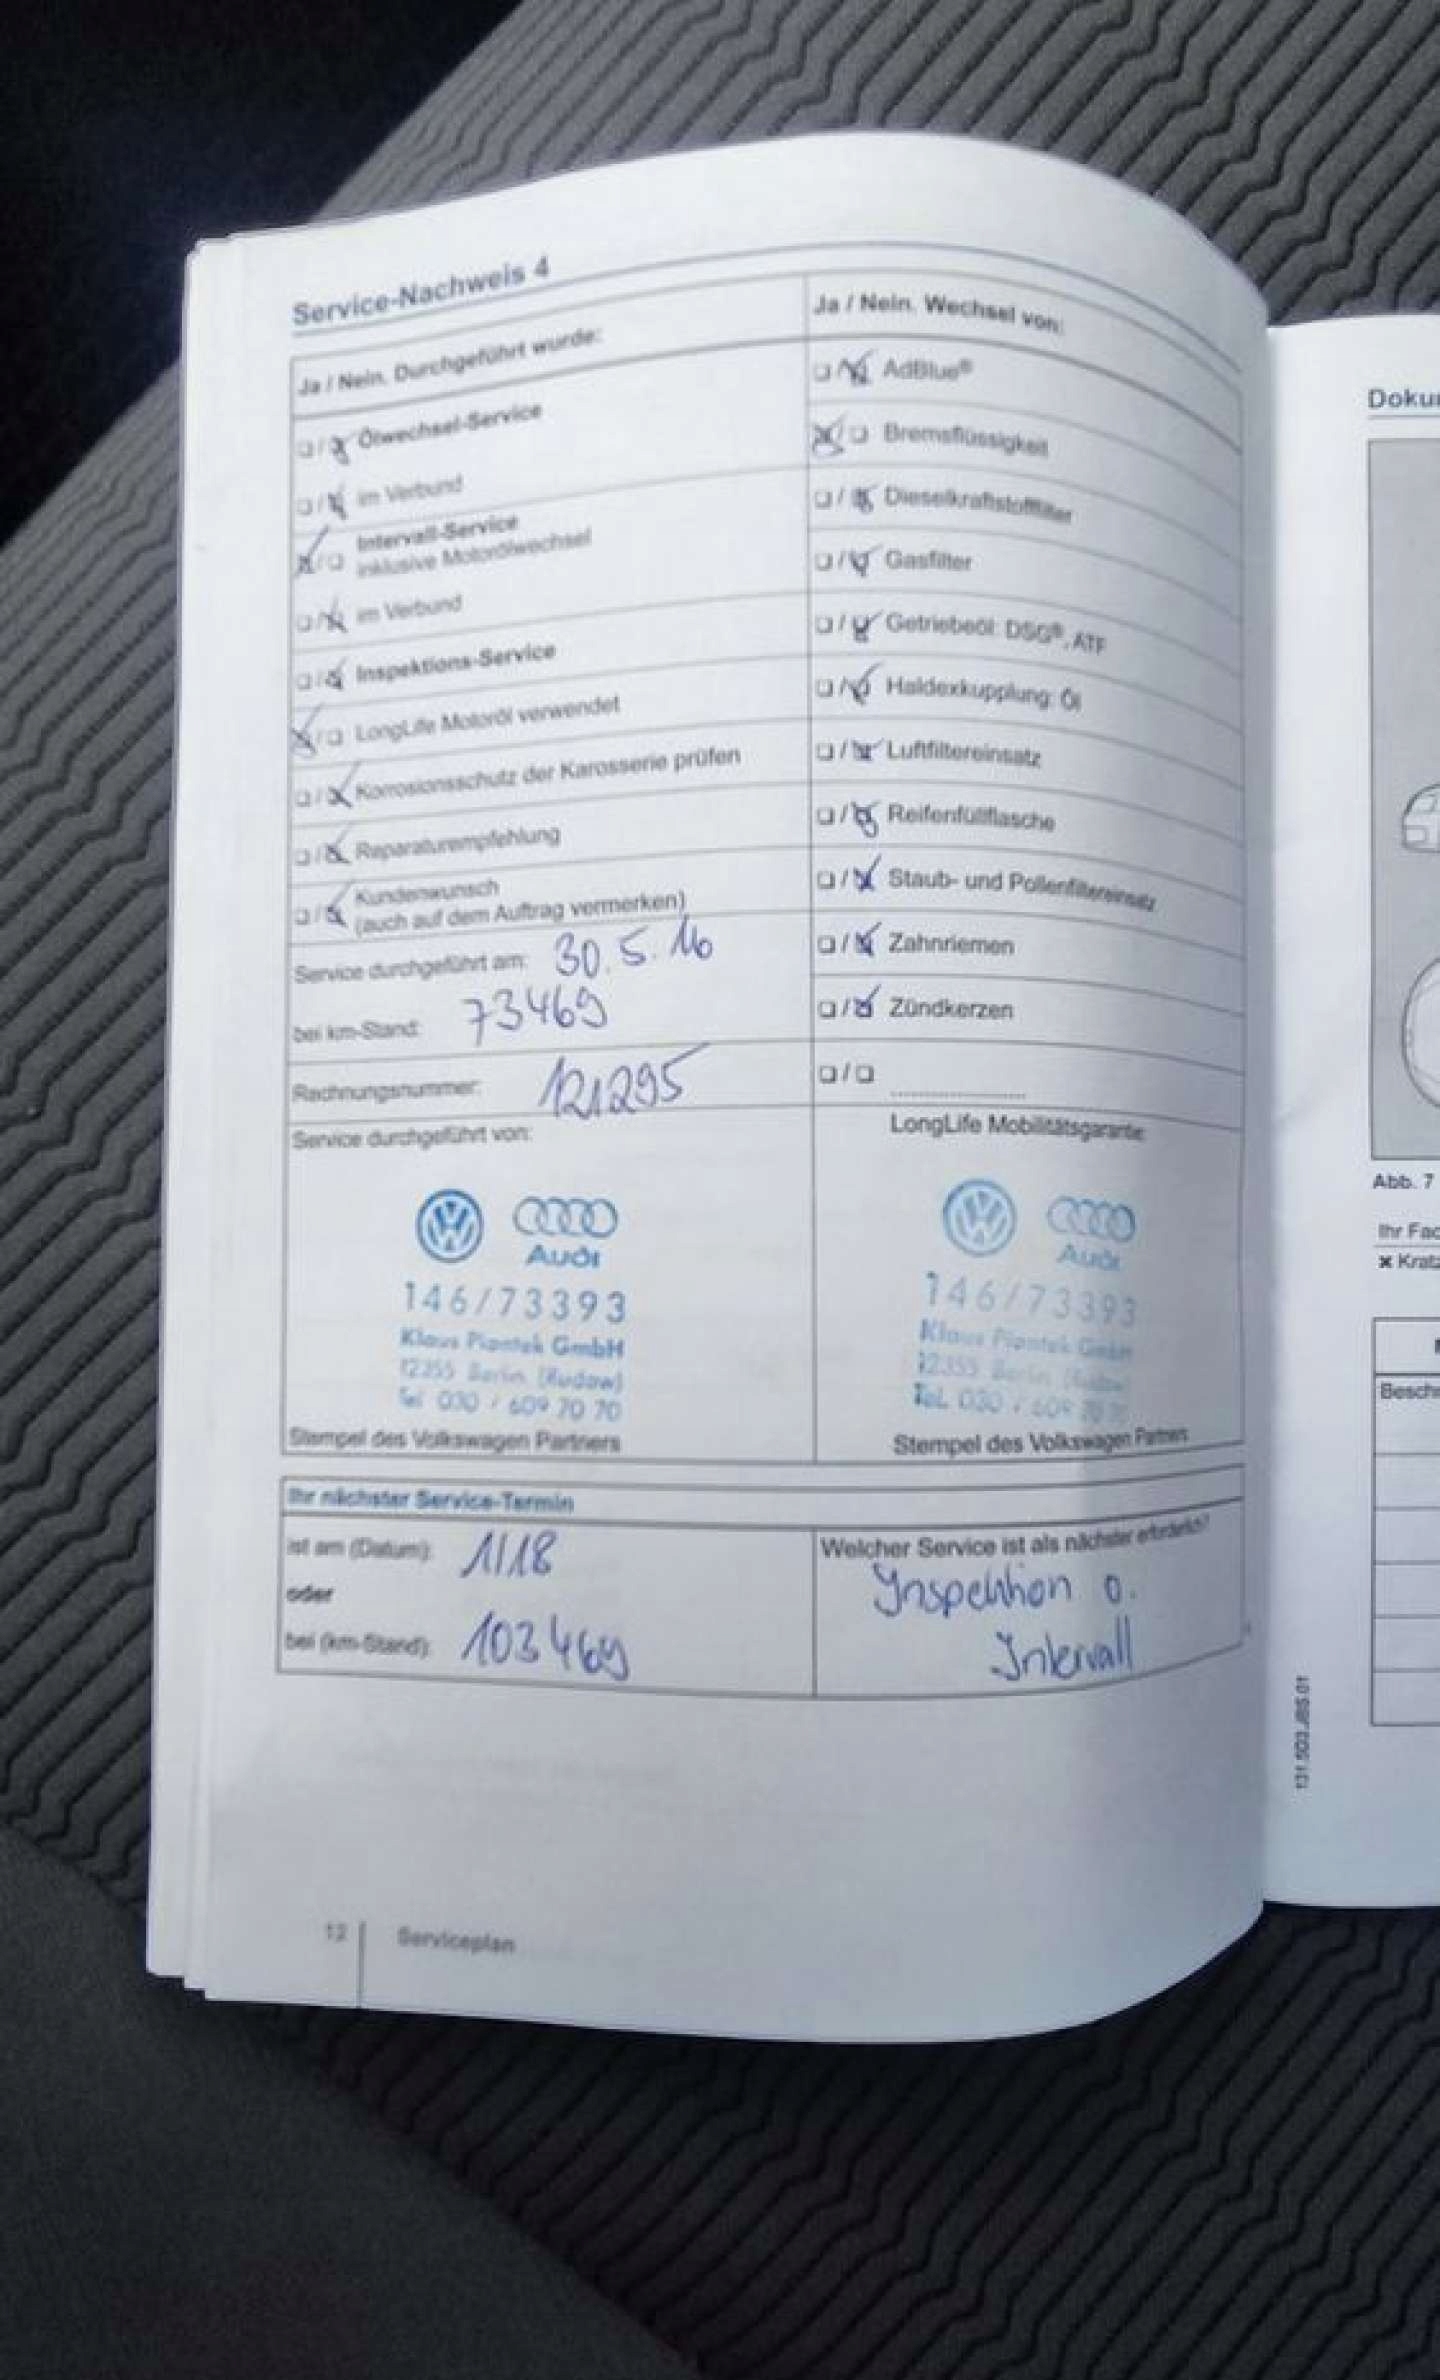 Service-Nachweis 4
Ja / Nein. Durchgeführt wurde:
Ölwechsel-Service
im Verbund
Intervall-Service
inklusive Motorölwechsel
im Verbund
Inspektions-Service
LongLife Motoröl verwendet
Korrosionsschutz der Karosserie prüfen
Reparaturempfehlung
Kundenwunsch
(auch auf dem Auftrag vermerken)
Service durchgeführt am: 30.5.16
bei km-Stand: 73469
Rechnungsnummer: 121295
Service durchgeführt von:
Audi
146/73393
Klaus Piontek GmbH
12355 Berlin (Rudow)
Tel 030 / 609 70 70
Stempel des Volkswagen Partners
Ja / Nein. Wechsel von:
AdBlue®
Bremsflüssigkeit
Dieselkraftstofffilter
Gasfilter
Getriebeöl: DSG®, ATF
Haldexkupplung: Öl
Luftfiltereinsatz
Reifenfüllflasche
Staub- und Pollenfiltereinsatz
Zahnriemen
Zündkerzen
LongLife Mobilitätsgarantie
Audi
146/73393
Klaus Piontek GmbH
12355 Berlin (Rudow)
Tel. 030 / 609 70 70
Stempel des Volkswagen Partners
Ihr nächster Service-Termin
ist am (Datum): 1/18
oder
bei (km-Stand): 103469
Welcher Service ist als nächster erforderlich?
Inspektion o.
Intervall
12 Serviceplan
131.5D3.JBS.01
Doku
Abb. 7
Ihr Fac
Kratz
Besch